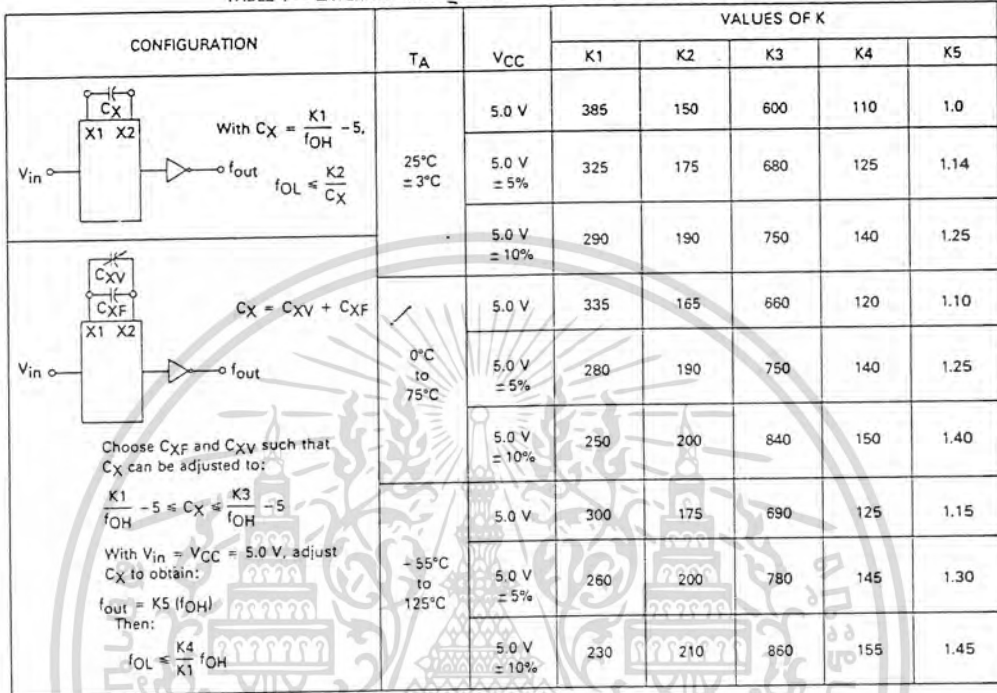 VALUES OF K
CONFIGURATION TA VCC K1 K2 K3 K4 K5
CX
X1 X2
Vin
fout
With CX = K1/fOH -5,
fOL ≤ K2/CX
25°C
± 3°C
5.0 V 385 150 600 110 1.0
5.0 V ± 5% 325 175 680 125 1.14
5.0 V ± 10% 290 190 750 140 1.25
CXV
CXF
X1 X2
Vin
fout
CX = CXV + CXF
Choose CXF and CXV such that
CX can be adjusted to:
K1/fOH -5 ≤ CX ≤ K3/fOH -5
With Vin = VCC = 5.0 V, adjust
CX to obtain:
fout = K5 (fOH)
Then:
fOL ≤ K4/K1 fOH
0°C
to
75°C
5.0 V 335 165 660 120 1.10
5.0 V ± 5% 280 190 750 140 1.25
5.0 V ± 10% 250 200 840 150 1.40
- 55°C
to
125°C
5.0 V 300 175 690 125 1.15
5.0 V ± 5% 260 200 780 145 1.30
5.0 V ± 10% 230 210 860 155 1.45